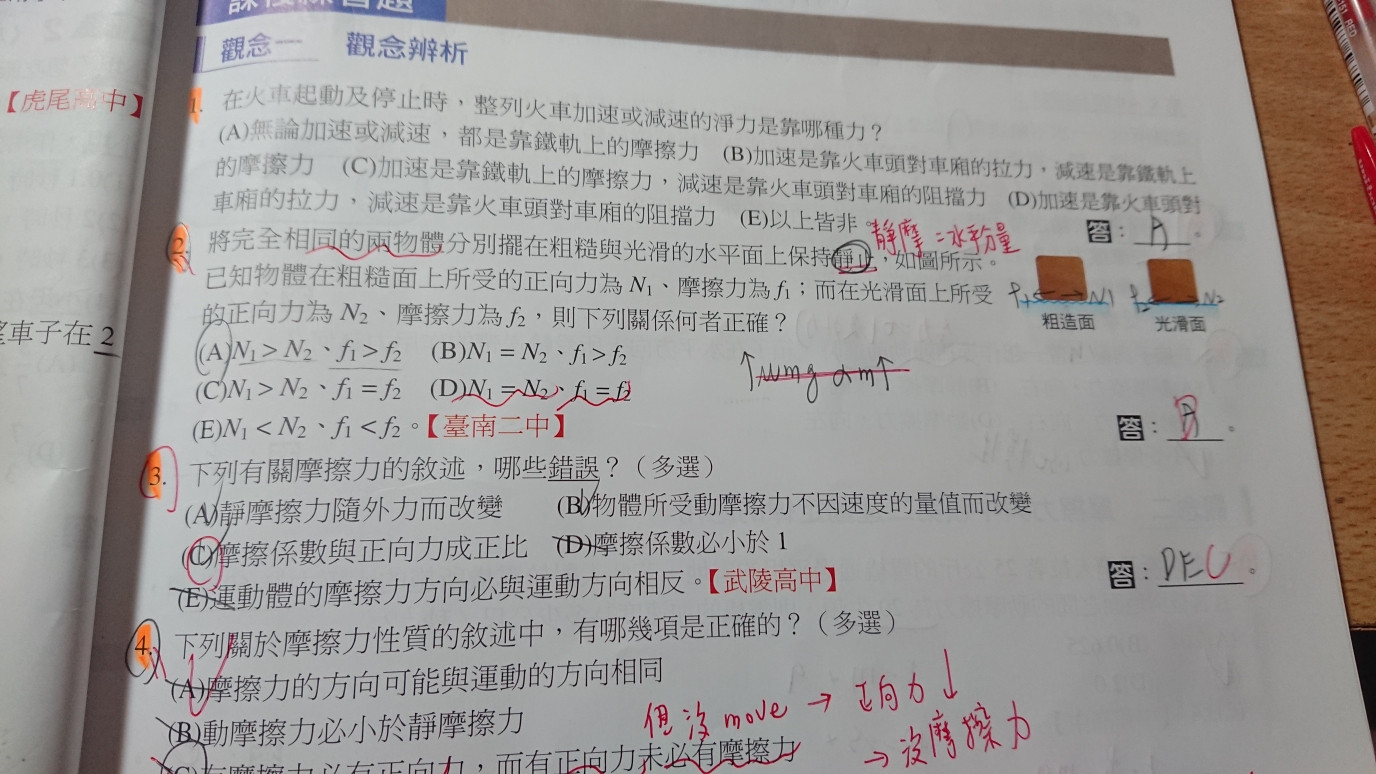 觀念一 觀念辨析
【虎尾高中】
1. 在火車起動及停止時，整列火車加速或減速的淨力是靠哪種力？
(A)無論加速或減速，都是靠鐵軌上的摩擦力 (B)加速是靠火車頭對車廂的拉力，減速是靠鐵軌上
的摩擦力 (C)加速是靠鐵軌上的摩擦力，減速是靠火車頭對車廂的阻擋力 (D)加速是靠火車頭對
車廂的拉力，減速是靠火車頭對車廂的阻擋力 (E)以上皆非。
答：A。
靜摩=水平分量
2. 將完全相同的兩物體分別擺在粗糙與光滑的水平面上保持靜止，如圖所示。
已知物體在粗糙面上所受的正向力為N₁、摩擦力為f₁；而在光滑面上所受
的正向力為N₂、摩擦力為f₂，則下列關係何者正確？
粗造面 光滑面
(A)N₁>N₂、f₁>f₂ (B)N₁=N₂、f₁>f₂
(C)N₁>N₂、f₁=f₂ (D)N₁=N₂、f₁=f₂
(E)N₁<N₂、f₁<f₂。【臺南二中】
↑μmg αm↑
答：
整車子在2
3. 下列有關摩擦力的敘述，哪些錯誤？（多選）
(A)靜摩擦力隨外力而改變 (B)物體所受動摩擦力不因速度的量值而改變
(C)摩擦係數與正向力成正比 (D)摩擦係數必小於1
(E)運動體的摩擦力方向必與運動方向相反。【武陵高中】
答：DEC。
4. 下列關於摩擦力性質的敘述中，有哪幾項是正確的？（多選）
(A)摩擦力的方向可能與運動的方向相同
(B)動摩擦力必小於靜摩擦力
但沒move→正向力↓
→沒摩擦力
(C)有摩擦力必有正向力，而有正向力未必有摩擦力